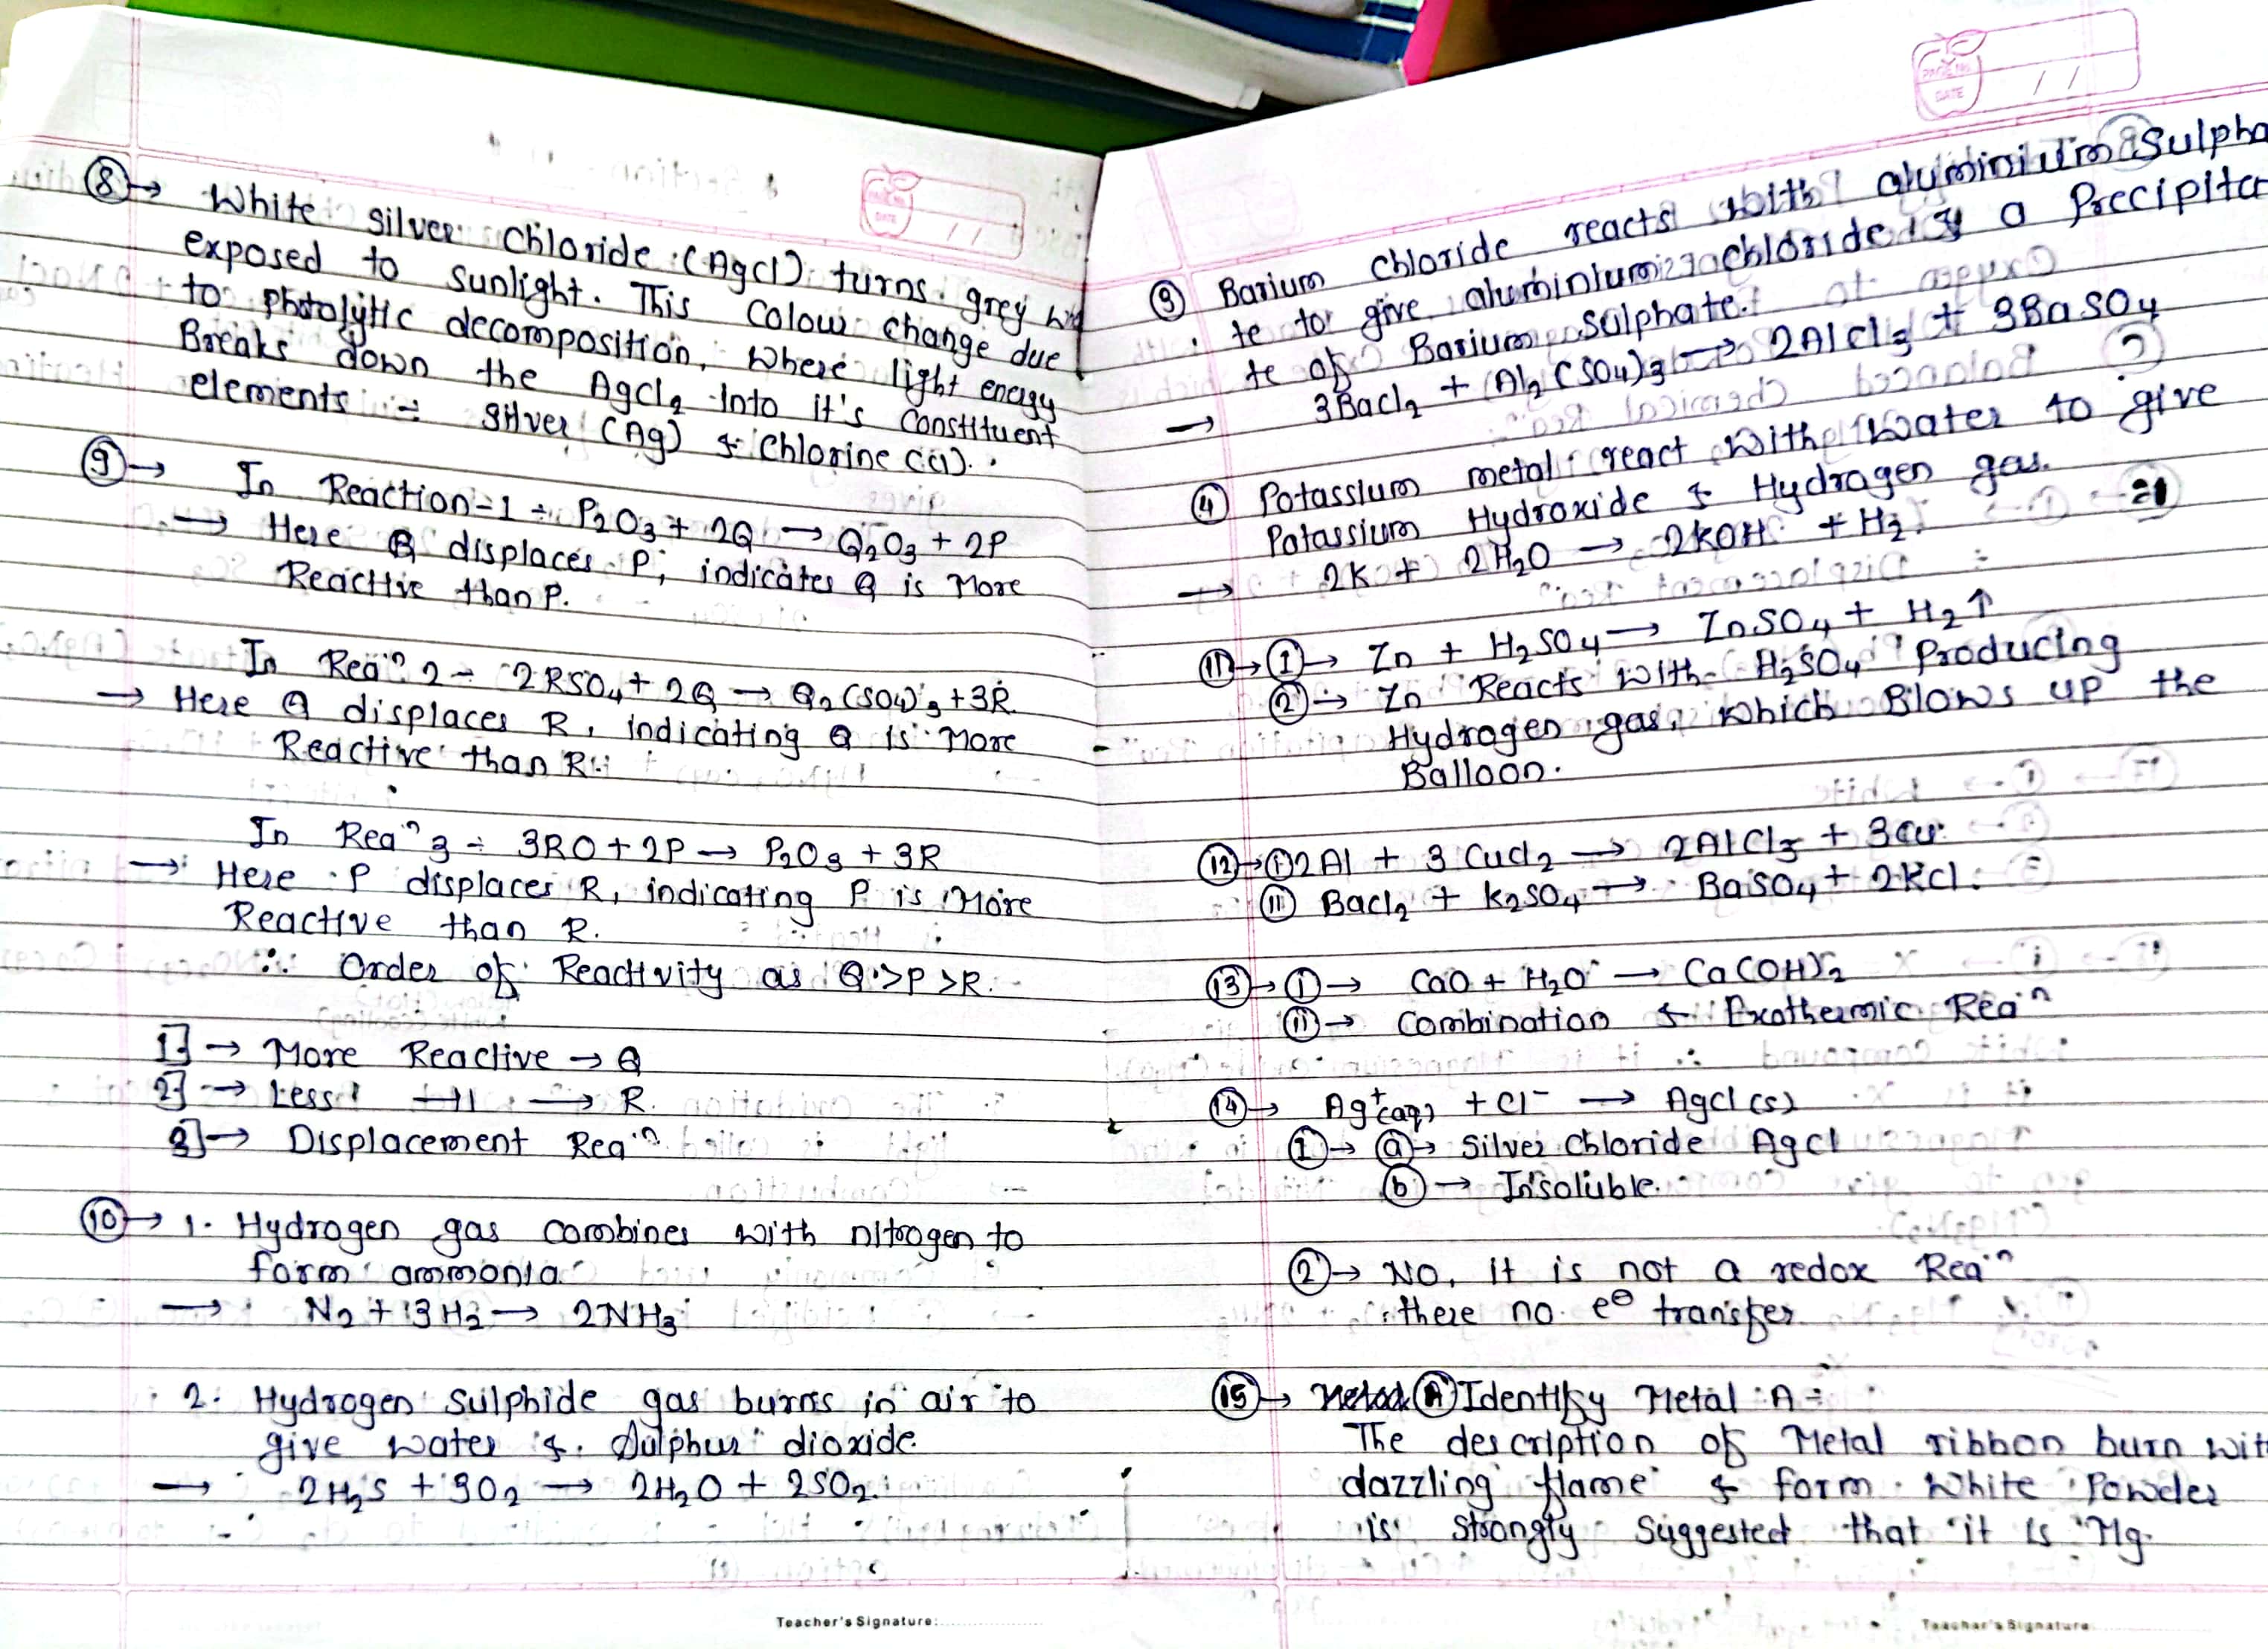 ⑧→ White Silver Chloride (AgCl) turns grey
exposed to sunlight. This Colour change due
to photolytic decomposition, where light energy
Breaks down the AgCl2 Into it's Constituent
elements ÷ Silver (Ag) & Chlorine (Cl).
⑨→ In Reaction-1 ÷ P2O3 + 2Q → Q2O3 + 2P
→ Here Q displaces P, indicates Q is More
Reactive than P.
In Reaⁿ 2 ÷ 2RSO4 + 2Q → Q2(SO4)3 + 3R
→ Here Q displaces R, indicating Q is More
Reactive than R.
In Reaⁿ 3 ÷ 3RO + 2P → P2O3 + 3R
→ Here P displaces R, indicating P is More
Reactive than R.
∴ Order of Reactivity as Q>P>R.
1] → More Reactive → Q
2] → Less —11— → R.
3] → Displacement Reaⁿ
⑩→ 1. Hydrogen gas combines with nitrogen to
form ammonia
→ N2 + 3H2 → 2NH3
2. Hydrogen Sulphide gas burns in air to
give water & Sulphur dioxide.
→ 2H2S + 3O2 → 2H2O + 2SO2.
Teacher's Signature:
PAGE NO.
DATE / /
③ Barium Chloride reacts with aluminium Sulpha
te to give aluminium chloride & a Precipita
te of Barium Sulphate.
→ 3BaCl2 + Al2(SO4)3 → 2AlCl3 + 3BaSO4
④ Potassium metal react with water to give
Potassium Hydroxide & Hydrogen gas.
→ 2K + 2H2O → 2KOH + H2
⑪→①→ Zn + H2SO4 → ZnSO4 + H2↑
②→ Zn Reacts with H2SO4 Producing
Hydrogen gas, which Blows up the
Balloon.
⑫→ⓘ 2Al + 3CuCl2 → 2AlCl3 + 3Cu
ⓘⓘ BaCl2 + K2SO4 → BaSO4 + 2KCl.
⑬→①→ CaO + H2O → Ca(OH)2
ⓘⓘ→ Combination & Exothermic Reaⁿ
⑭→ Ag+(aq) + Cl- → AgCl(s)
①→ ⓐ→ Silver Chloride AgCl
ⓑ→ Insoluble.
②→ NO, it is not a redox Reaⁿ
there no e⊖ transfer
⑮→ Ⓐ Identify Metal A ÷
The description of Metal ribbon burn wit
dazzling flame & form White Powder
is strongly suggested that it is Mg.
Teacher's Signature